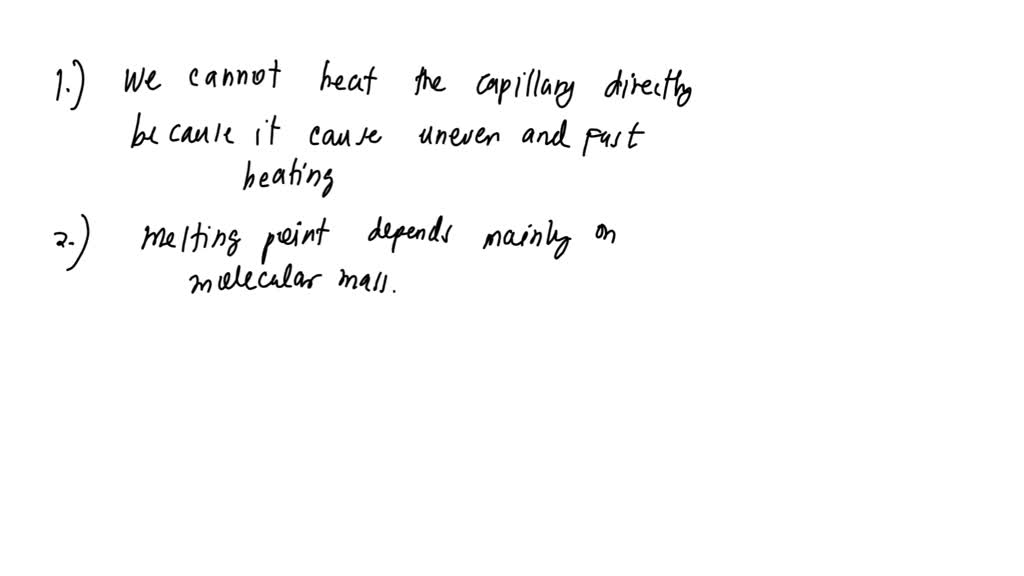 1.) We cannot heat the capillary directly
because it cause uneven and fast
heating
2.) Melting point depends mainly on
molecular mass.